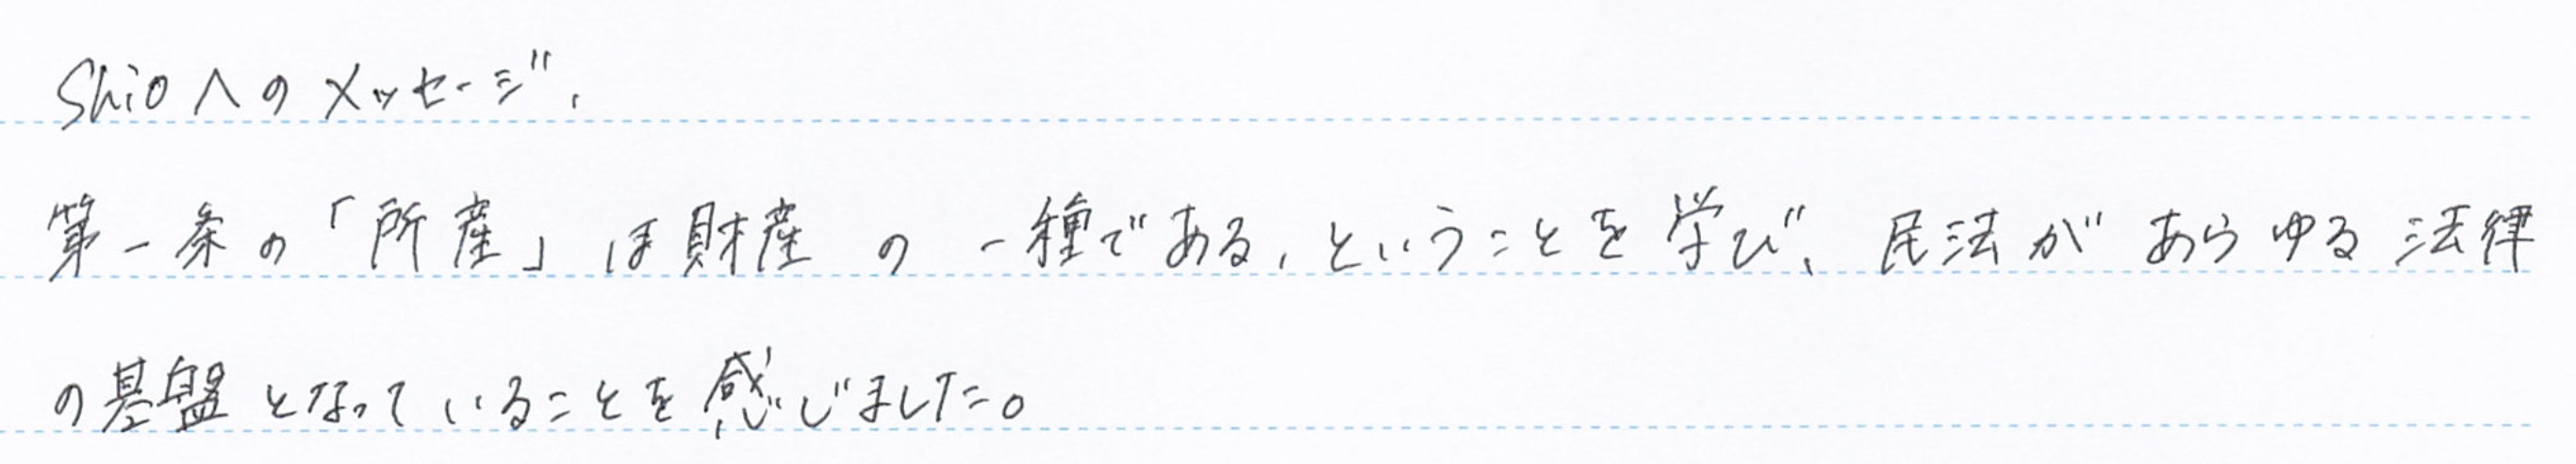 Shioへのメッセージ、
第一条の「所産」は財産の一種である、ということを学び、民法があらゆる法律
の基盤となっていることを感じました。